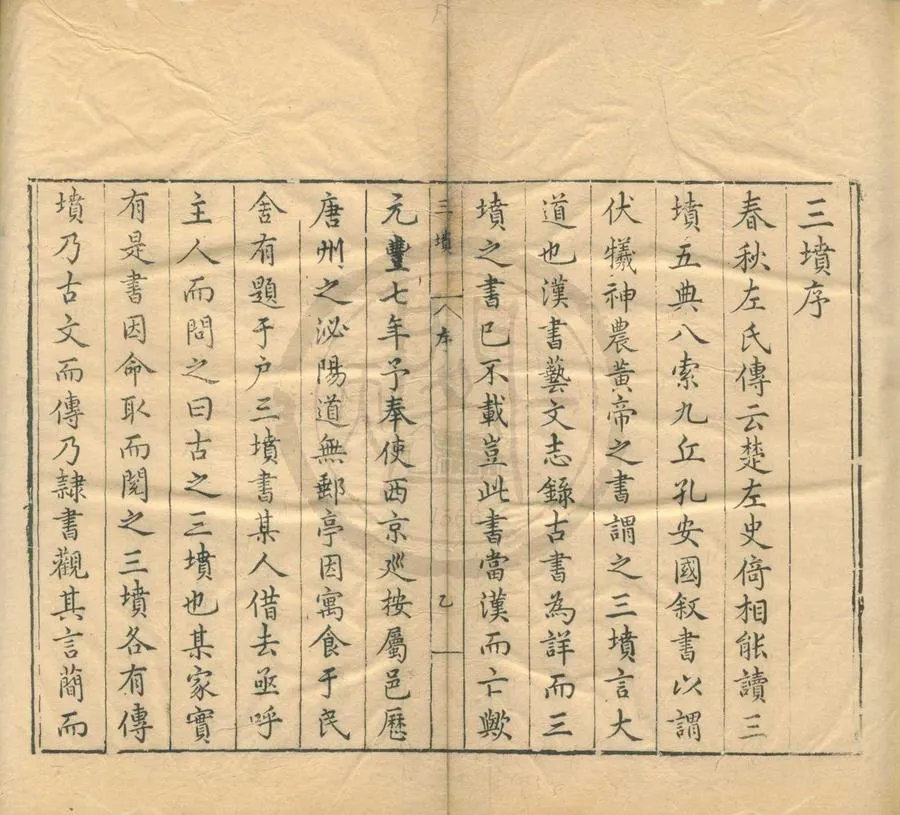 三墳序
春秋左氏傳云楚左史倚相能讀三
墳五典八索九丘孔安國叙書以謂
伏犧神農黃帝之書謂之三墳言大
道也漢書藝文志錄古書為詳而三
墳之書已不載豈此書當漢而亡歟
三墳 序 乙
元豐七年予奉使西京巡按屬邑歷
唐州之泌陽道無郵亭因寓食于民
舍有題于户三墳書某人借去亟呼
主人而問之曰古之三墳也某家實
有是書因命取而閱之三墳各有傳
墳乃古文而傳乃隸書觀其言簡而